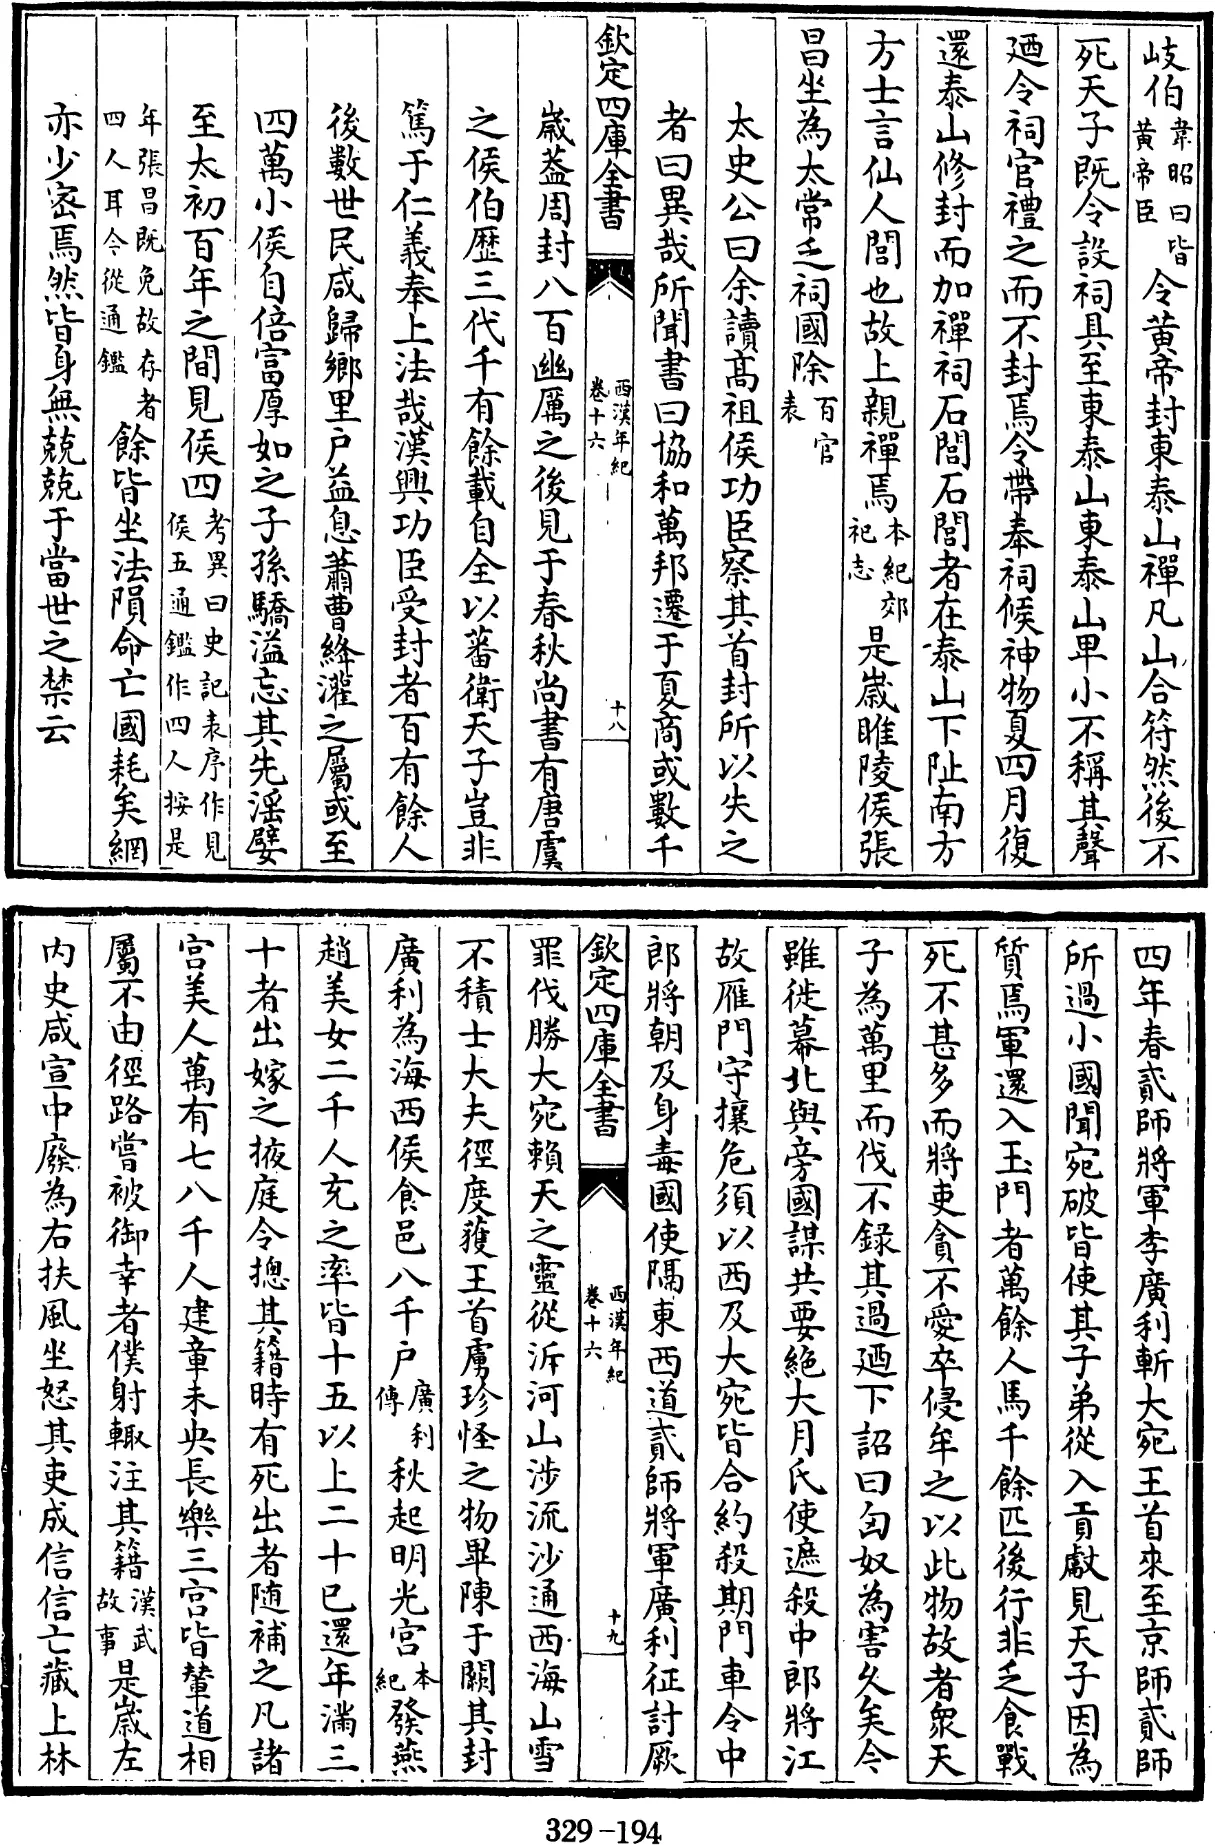 岐伯韋昭曰皆黄帝臣令黄帝封東泰山禪凡山合符然後不
死天子既令設祠具至東泰山東泰山卑小不稱其聲
廼令祠官禮之而不封焉令帶奉祠候神物夏四月復
還泰山修封而加禪祠石閭石閭者在泰山下阯南方
方士言仙人閭也故上親禪焉本紀郊祀志是歲睢陵侯張
昌坐為太常乏祠國除百官表
太史公曰余讀髙祖侯功臣察其首封所以失之
者曰異哉所聞書曰協和萬邦遷于夏商或數千
欽定四庫全書
西漢年紀
卷十六
十八
歲葢周封八百幽厲之後見于春秋尚書有唐虞
之侯伯歴三代千有餘載自全以蕃衛天子豈非
篤于仁義奉上法哉漢興功臣受封者百有餘人
後數世民咸歸鄉里户益息蕭曹絳灌之屬或至
四萬小侯自倍富厚如之子孫驕溢忘其先淫嬖
至太初百年之間見侯四考異曰史記表序作見侯五通鑑作四人按是
年張昌既免故存者四人耳今從通鑑餘皆坐法隕命亡國耗矣網
亦少密焉然皆身無兢兢于當世之禁云
四年春貳師將軍李廣利斬大宛王首來至京師貳師
所過小國聞宛破皆使其子弟從入貢獻見天子因為
質焉軍還入玉門者萬餘人馬千餘匹後行非乏食戰
死不甚多而將吏貪不愛卒侵牟之以此物故者衆天
子為萬里而伐不録其過廼下詔曰匈奴為害久矣今
雖徙幕北與旁國謀共要絶大月氏使遮殺中郎將江
故雁門守攘危須以西及大宛皆合約殺期門車令中
郎將朝及身毒國使隔東西道貳師將軍廣利征討厥
欽定四庫全書
西漢年紀
卷十六
十九
罪伐勝大宛賴天之靈從泝河山涉流沙通西海山雪
不積士大夫徑度獲王首虜珍怪之物畢陳于闕其封
廣利為海西侯食邑八千户廣利傳秋起明光宫本紀發燕
趙美女二千人充之率皆十五以上二十巳還年滿三
十者出嫁之掖庭令摠其籍時有死出者随補之凡諸
宫美人萬有七八千人建章未央長樂三宫皆輦道相
屬不由徑路嘗被御幸者僕射輙注其籍漢武故事是歲左
内史咸宣中廢為右扶風坐怒其吏成信信亡藏上林
329-194